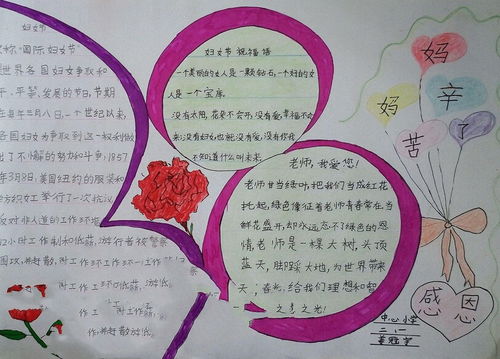 妇女节
称"国际妇女节
世界各国妇女争取和
平、平等、发展的节日。节期
在每年三月八日。一个世纪以来,
各国妇女为争取到这一权利做
出了不懈的努力和斗争。1857
年3月8日,美国纽约的服装和
纺织女工举行了一次抗议
反对非人道的工作环境
12小时工作制和低薪。游行者被警察
围攻,并赶散
妇女节祝福语
一个美丽的女人是一颗钻石,一个好的女
人是一个宝库。
没有太阳,花朵不会开;没有爱,幸福不会
来;没有妇女,也就没有爱;没有你我
不知道什么叫未来。
老师,我爱您!
老师甘当绿叶,把我们当成红花
托起,绿色像征着老师青春常在,当
鲜花盛开,却永远忘不了绿色的恩
情,老师是一棵大树,头顶
蓝天,脚踩大地,为世界带来
春光,给我们理想和智
之光!
妈
妈
辛
苦
了
感恩
中心小学
二.1